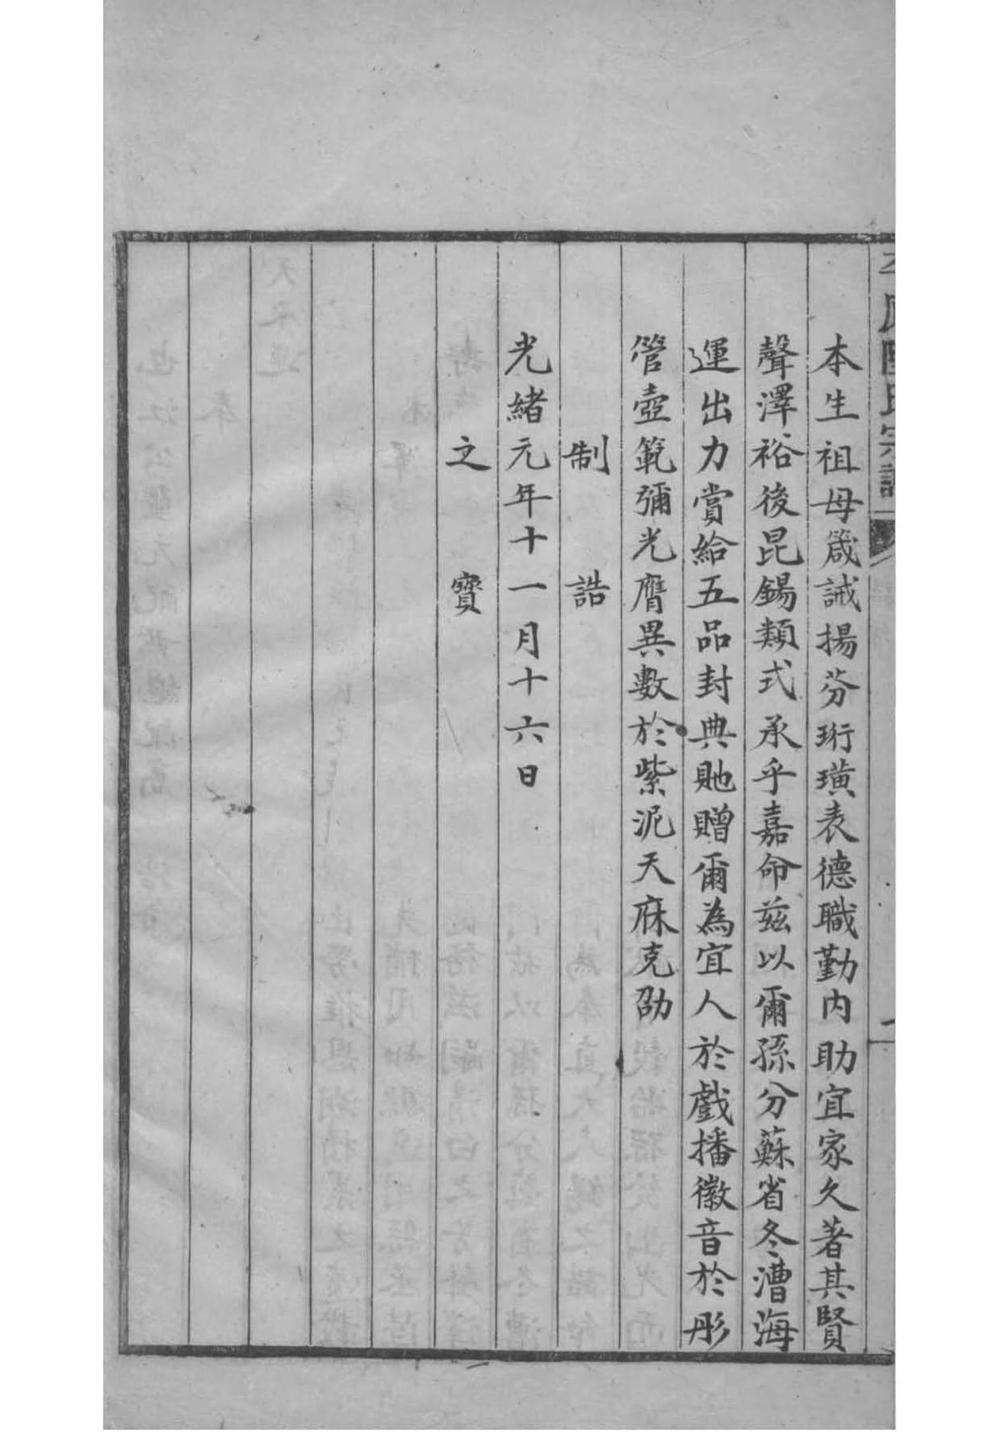 本生祖母箴誡揚芬珩璜表德職勤内助宜家久著其賢
聲澤裕後昆錫類式承乎嘉命兹以爾孫分蘇省冬漕海
運出力賞給五品封典貤贈爾為宜人於戲播徽音於彤
管壺範彌光膺異數於紫泥天庥克劭
制誥
光緒元年十一月十六日
之寶